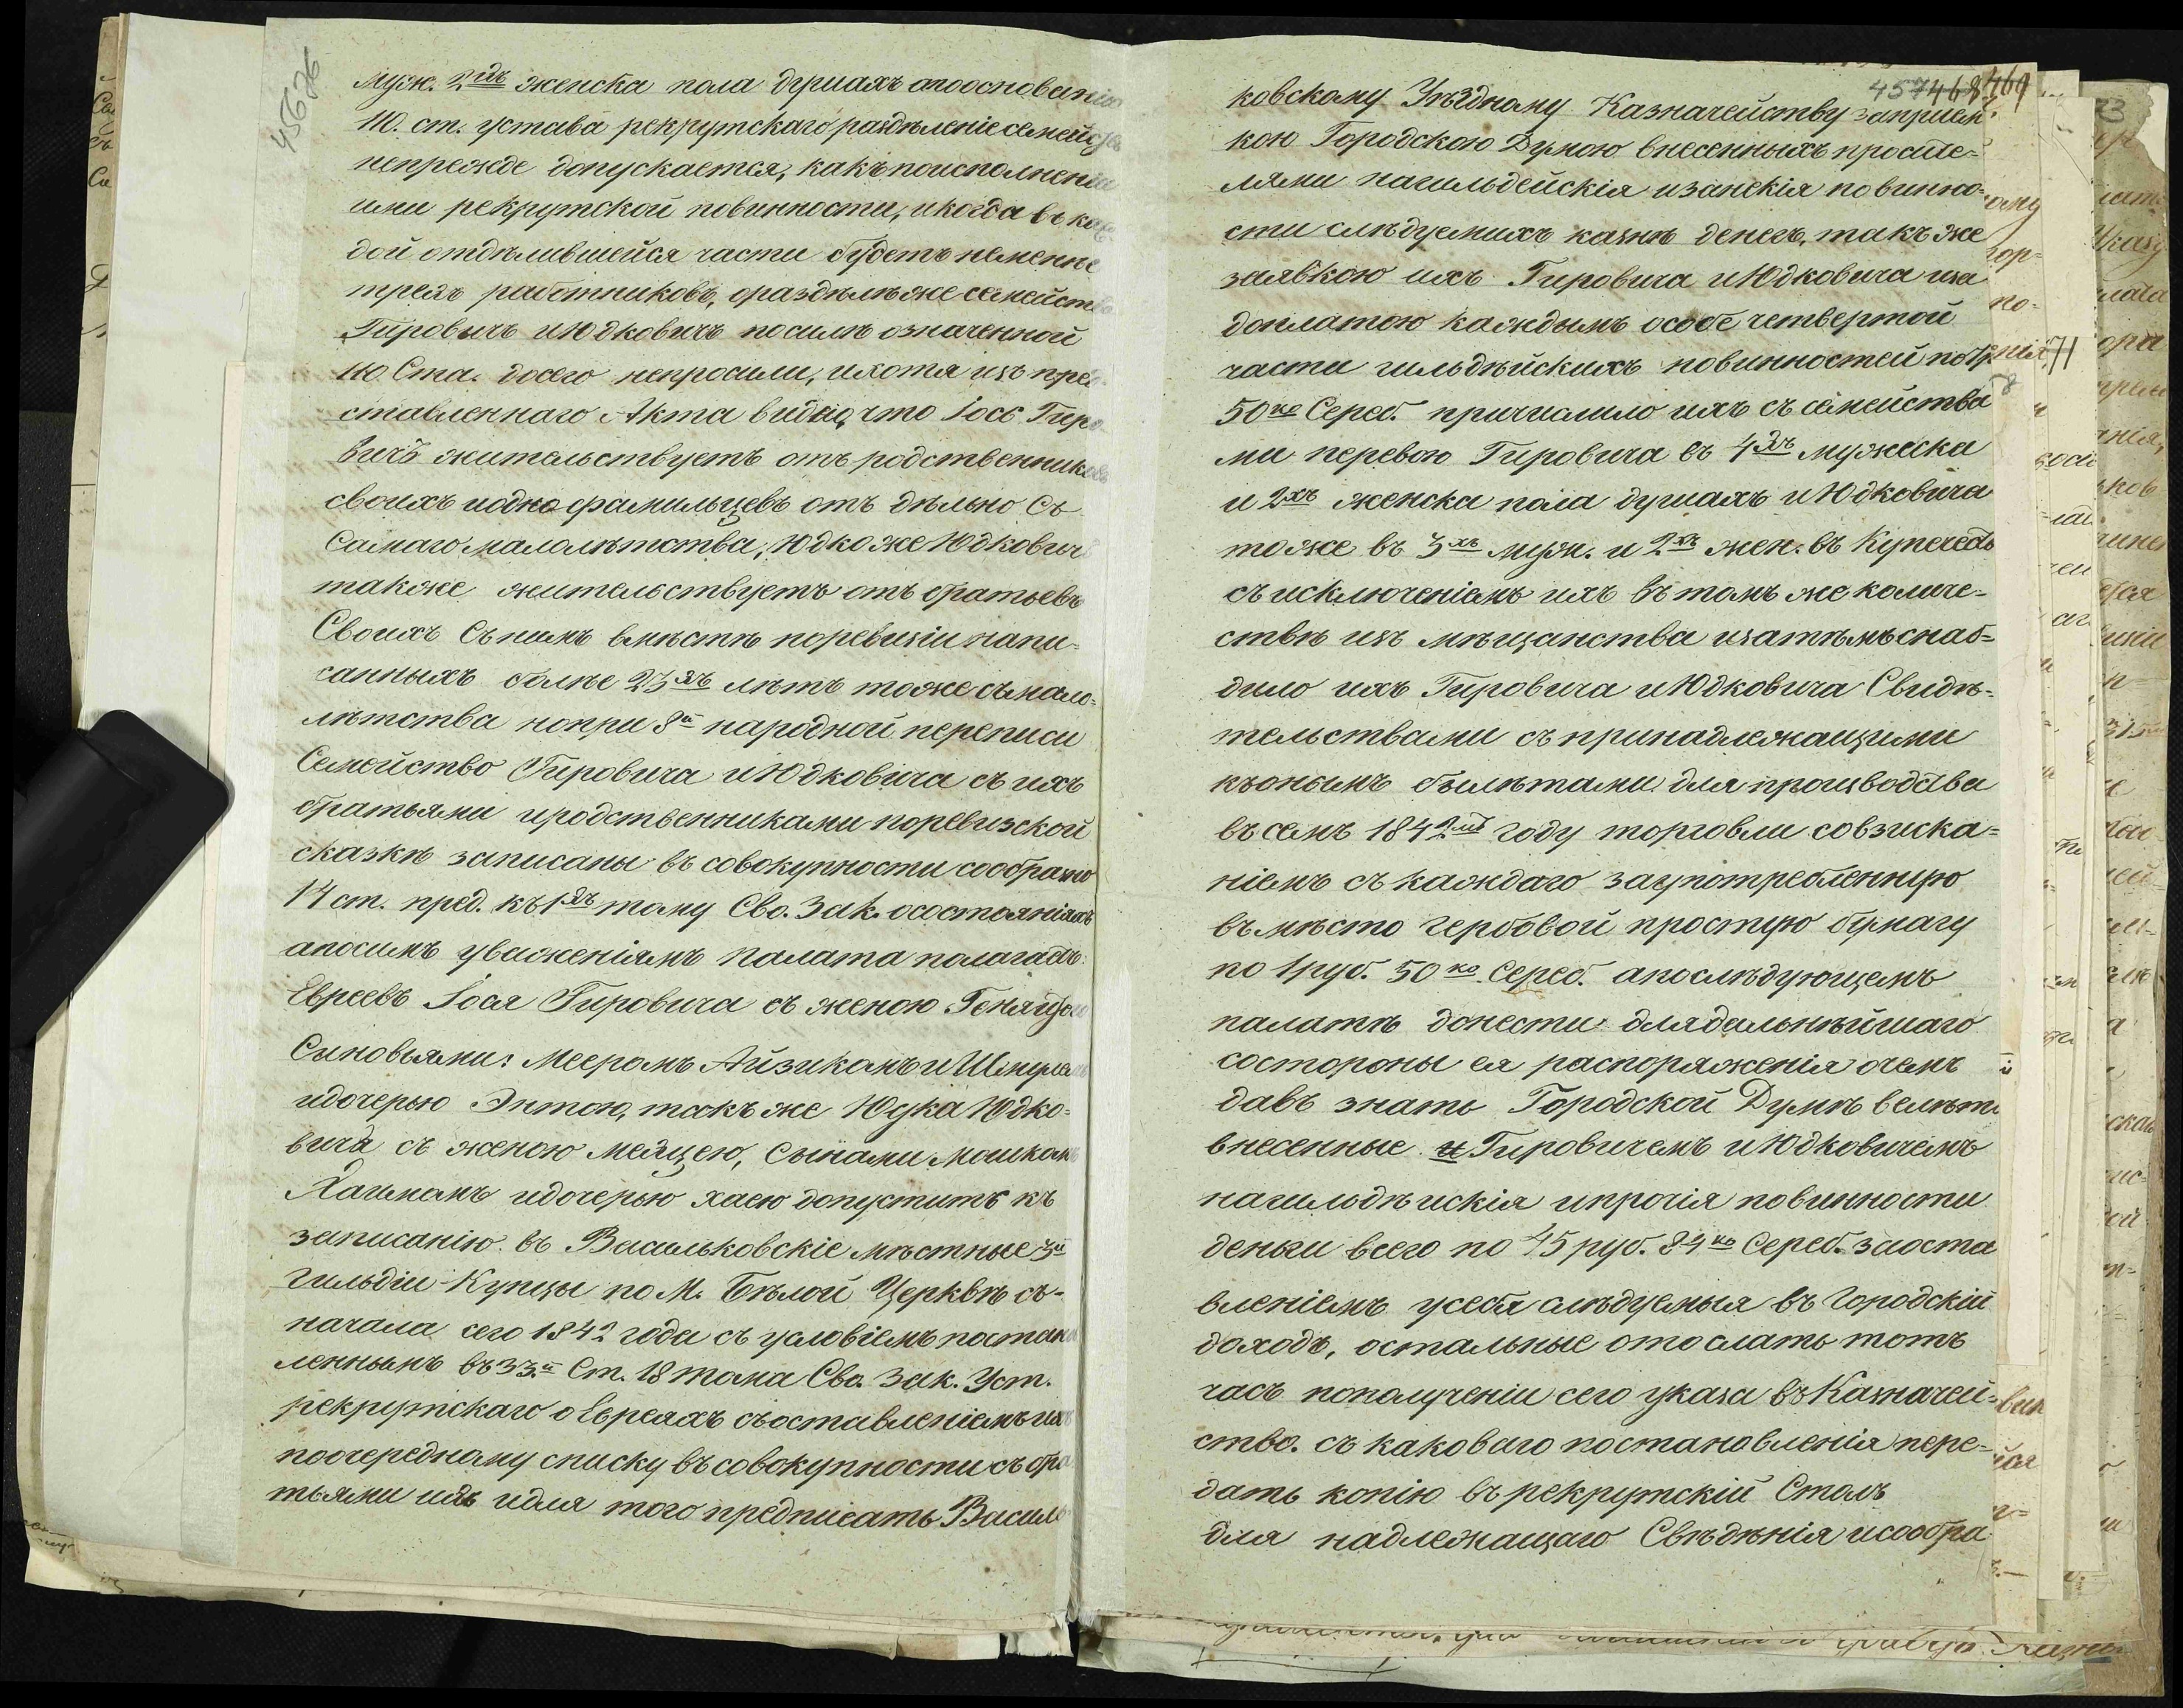 муж. 2хъ женска пола душахъ апооснованію
110. ст. устава рекрутскаго раздѣленіе семействъ
непрежде допускается, какъ поисполненіи
ими рекрутской повинности, икогда въ ка
дой отдѣлившейся части будетъ неменѣе
трехъ работниковъ, ораздѣлѣ же семейства
Гировичъ и Юдковичъ посилѣ означенной
110. Ста. досего непросили, ихотя изъ пред
ставленнаго Акта видно, что Іосъ Гиро
вичъ жительствуетъ отъ родственниковъ
своихъ иодно фамильцевъ отъ дѣльно Съ
Самаго малолѣтства, Юдко же Юдковичъ
также жительствуетъ отъ братьевъ
Своихъ Съ нимъ вмѣстѣ поревизіи напи=
санныхъ болѣе 23хъ лѣтъ тоже съмало=
лѣтства нопри 8й народной переписи
Семейство Гировича и Юдковича съ ихъ
братьями иродственниками поревизской
сказкѣ записаны въ совокупности сообразно
14 ст. пред. къ тому Сво. Зак. осостояніяхъ
апосимъ уваженіямъ Палата полагаетъ:
Евреевъ Іося Гировича съ женою
Сыновьями: Мееромъ Айзикомъ и Шмулемъ
идочерью Энтою, такъ же Юдка Юдко=
вича съ женою сынами Мошкомъ
идочерью хаею допустить къ
записанію въ Васильковскіе мѣстные 3й
гильдіи Купцы по М. Бѣлой Церквѣ съ-
начала сего 1842 года съ условіемъ постанов
леннымъ въ 33.й Ст. 18 тома Сво. Зак. Уст.
рекрутскаго о Евреяхъ съоставленіемъ ихъ
поочередному списку въ совокупности съ бра
тьями ихъ идля того предписать Василь
456 76
457 468 469
ковскому Уѣздному Казначейству
кою Городскою Думою внесенныхъ просите=
лями нагильдейскія изанскія повинно=
сти слѣдуемыхъ казнѣ денегъ, такъ же
заявкою ихъ Гировича и Юдковича иза
доплатою каждымъ особо четвертой
части гильдѣйскихъ повинностей по
50ко Сереб. причислило ихъ съ семейства
ми перваго Гировича въ 4хъ мужеска
и 2хъ женска пола душахъ и Юдковича
тоже въ 3хъ муж. и 2хъ жен. въ Купечеств
съ исключеніемъ ихъ въ томъ же количе=
ствѣ изъ мѣщанства изатѣмъ снаб=
дило ихъ Гировича и Юдковича Свидѣ=
тельствами съ принадлежащими
къонымъ билѣтами для производства
въ семъ 1842мъ году торговли совзиска=
ніемъ съ каждаго заупотребленную
въмѣсто гербовой простую бумагу
по 1 руб. 50 ко. Сереб. апослѣдующемъ
палатѣ донести длядальнѣйшаго
состороны ея распоряженія очемъ
давъ знать Городской Думѣ велѣть
внесенные и Гировичемъ и Юдковичемъ
нагильдѣискія ипрочія повинности
деньги всего по 45 руб. 84 ко Сереб. заоста
вленіемъ усебя слѣдуемыя въ Городскій
доходъ, остальные отослать тотъ
часъ пополученіи сего указа въ Казначей=
ство. съ каковаго постановленія пере=
дать копію въ рекрутскій Столъ
для надлежащаго Свѣдѣнія исообра